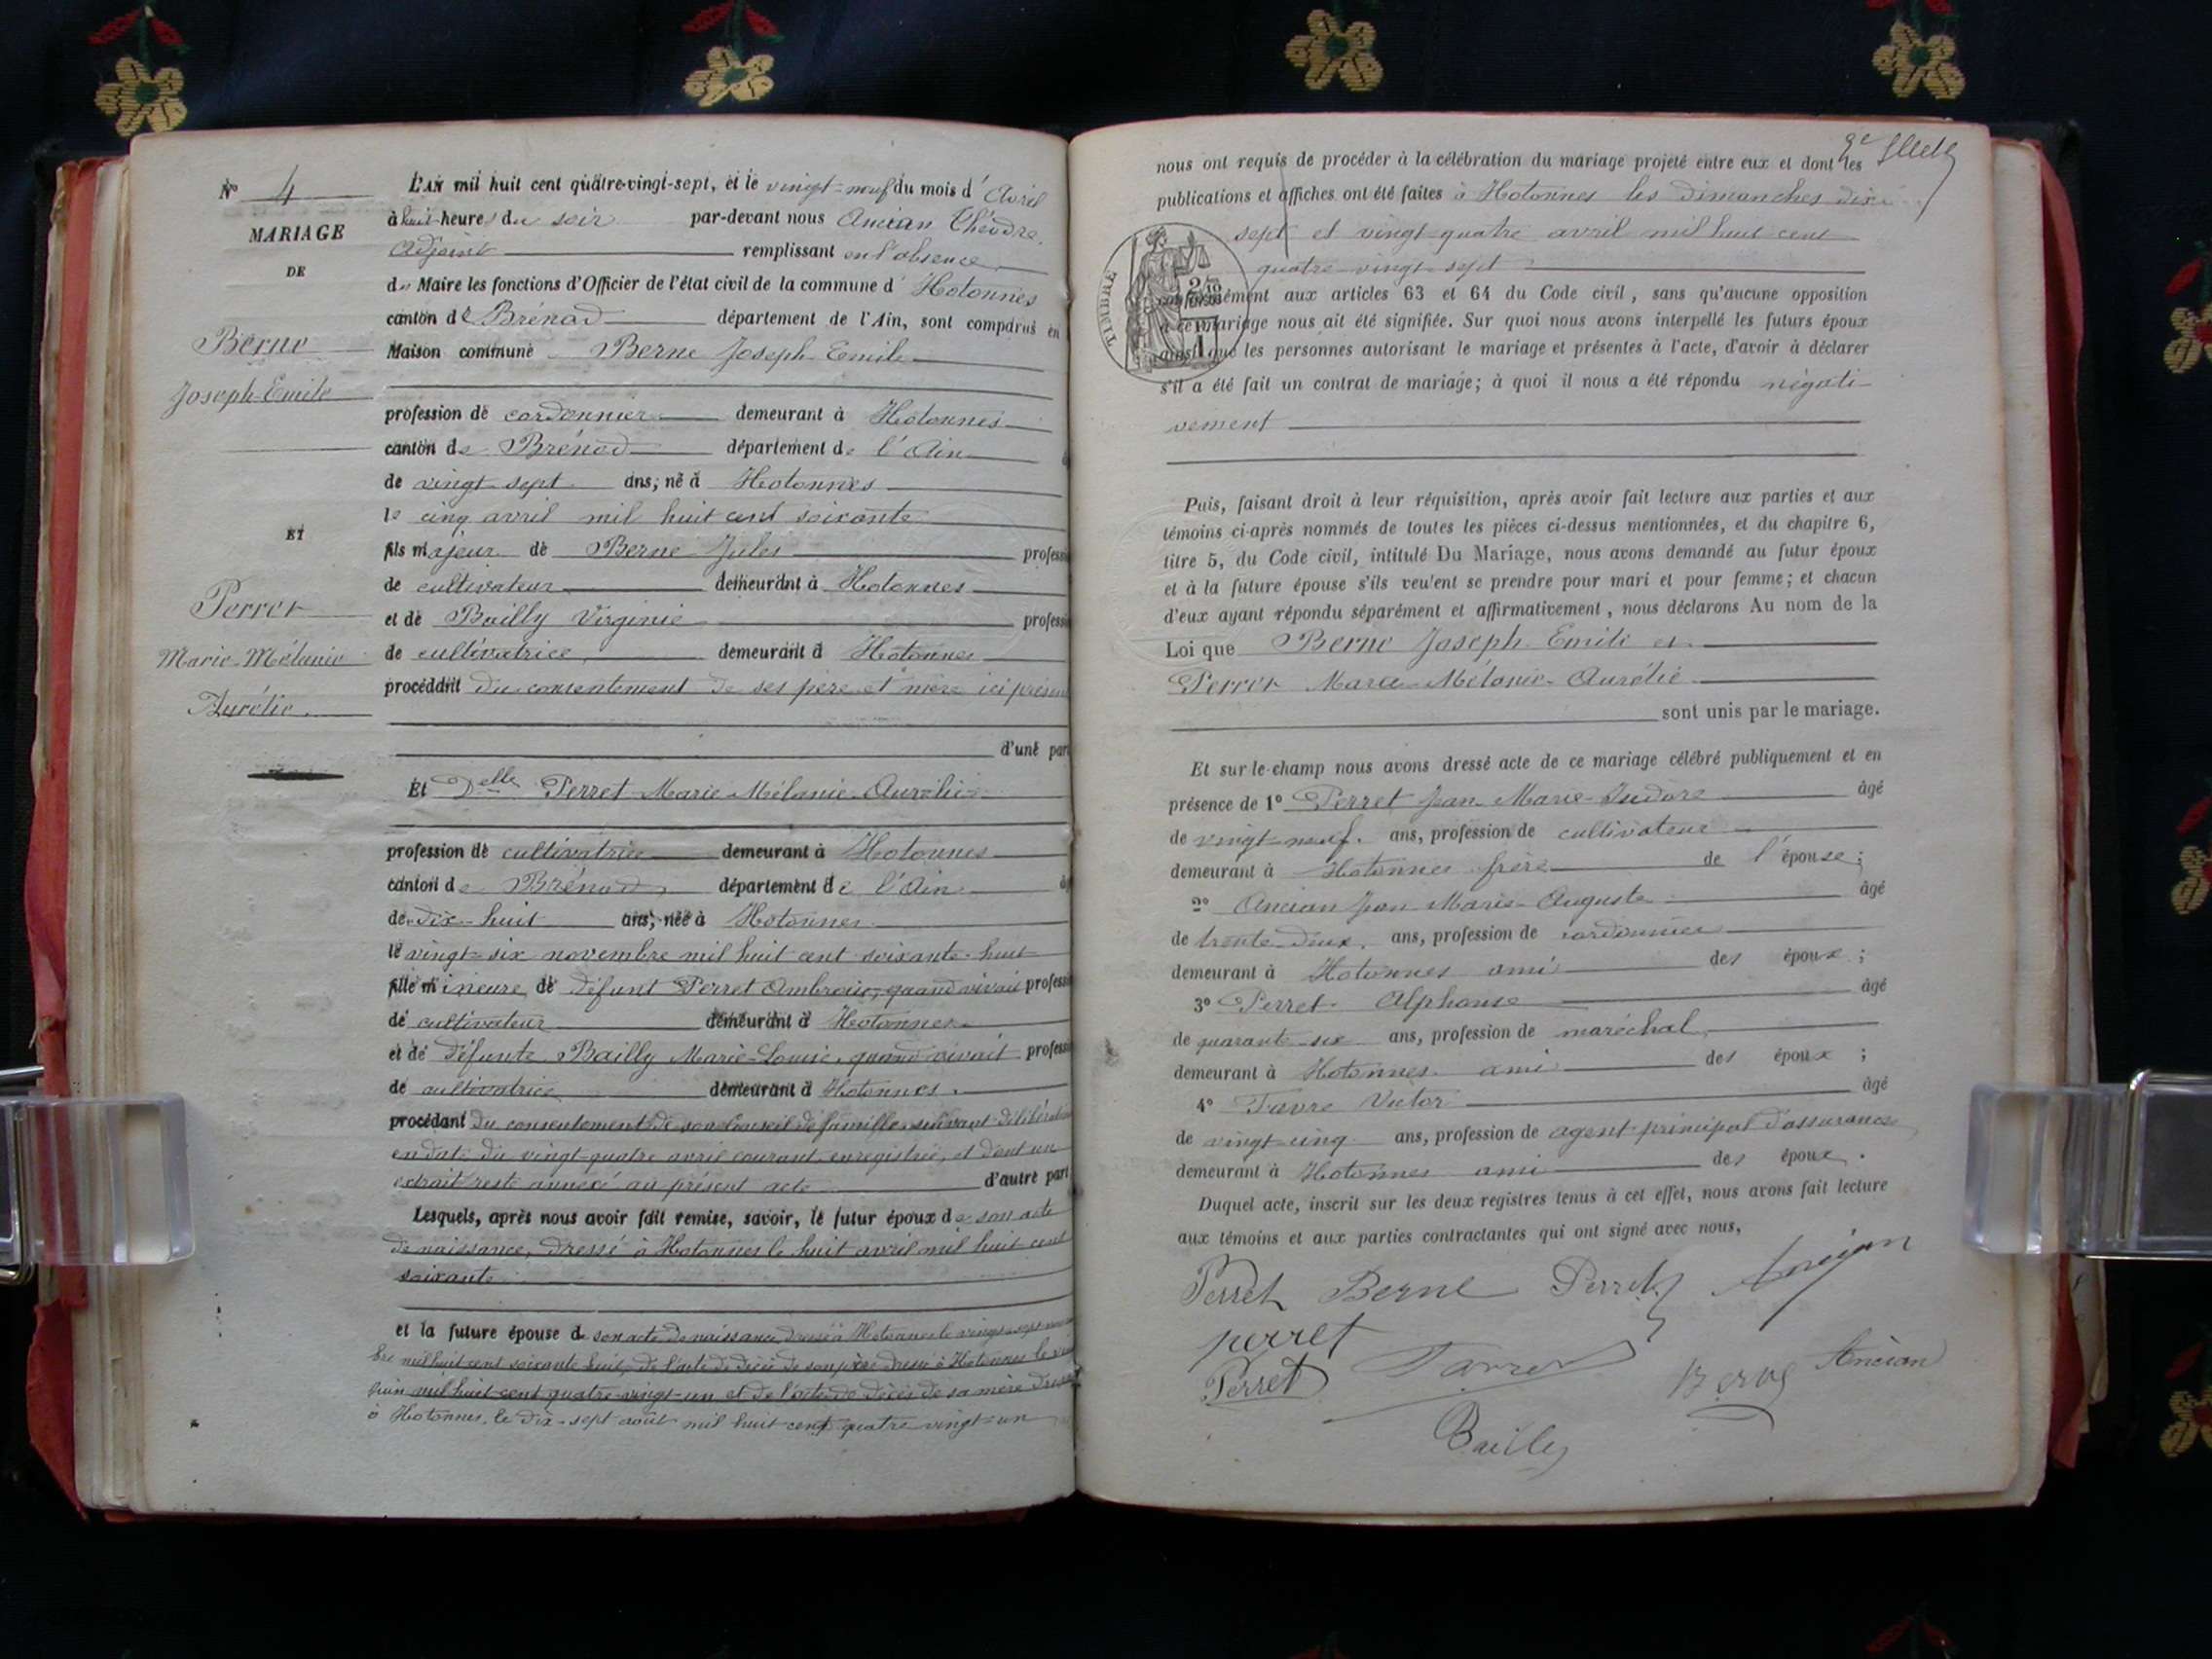 N° 4
MARIAGE
DE
Berne
Joseph-Emile
ET
Perret
Marie-Mélanie
Aurélie.
L'AN mil huit cent quatre-vingt-sept, et le vingt-neuf du mois d'Avril
à huit heures du soir par-devant nous Ancian Théodre,
Adjoint remplissant en l'absence
du Maire les fonctions d'Officier de l'état civil de la commune d'Hotonnes
canton de Brénod département de l'Ain, sont comparus en
Maison commune Berne Joseph-Emile
profession de cordonnier demeurant à Hotonnes
canton de Brénod département de l'Ain
de vingt-sept ans, né à Hotonnes
le cinq avril mil huit cent soixante
fils majeur de Berne Jules profess
de cultivateur demeurant à Hotonnes
et de Bailly Virginie profess
de cultivatrice demeurant à Hotonnes
procédant du consentement de ses père et mère ici présen
d'une part
Et Delle Perret Marie-Mélanie-Aurélie
profession de cultivatrice demeurant à Hotonnes
canton de Brénod département de l'Ain
de dix-huit ans, née à Hotonnes
le vingt-six novembre mil huit cent soixante-huit
fille mineure de défunt Perret Ambroise, quand vivait profess
de cultivateur demeurant à Hotonnes
et de défunte Bailly Marie-Louise, quand vivait profess
de cultivatrice demeurant à Hotonnes.
procédant du consentement de son Conseil de famille suivant délibération
en date du vingt-quatre avril courant, enregistrée, et dont un
extrait reste annexé au présent acte d'autre part
Lesquels, après nous avoir fait remise, savoir, le futur époux de son acte
de naissance, dressé à Hotonnes le huit avril mil huit cent
soixante
et la future épouse de son acte de naissance dressé à Hotonnes le vingt-sept novem
bre mil huit cent soixante-huit, de l'acte de décès de son père dressé à Hotonnes le
juin mil huit cent quatre-vingt-un et de l'acte de décès de sa mère dressé
à Hotonnes, le dix-sept août mil huit cent quatre vingt-un
nous ont requis de procéder à la célébration du mariage projeté entre eux et dont les
publications et affiches ont été faites à Hotonnes les dimanches dix-
sept et vingt-quatre avril mil huit cent
quatre-vingt-sept
TIMBRE
conformément aux articles 63 et 64 du Code civil, sans qu'aucune opposition
à ce mariage nous ait été signifiée. Sur quoi nous avons interpellé les futurs époux
ainsi que les personnes autorisant le mariage et présentes à l'acte, d'avoir à déclarer
s'il a été fait un contrat de mariage; à quoi il nous a été répondu négati-
vement
Puis, faisant droit à leur réquisition, après avoir fait lecture aux parties et aux
témoins ci-après nommés de toutes les pièces ci-dessus mentionnées, et du chapitre 6,
titre 5, du Code civil, intitulé Du Mariage, nous avons demandé au futur époux
et à la future épouse s'ils veulent se prendre pour mari et pour femme; et chacun
d'eux ayant répondu séparément et affirmativement, nous déclarons Au nom de la
Loi que Berne Joseph-Emile et
Perret Marie-Mélanie-Aurélie
sont unis par le mariage.
Et sur-le-champ nous avons dressé acte de ce mariage célébré publiquement et en
présence de 1° Perret Jean-Marie-Isidore âgé
de vingt-neuf ans, profession de cultivateur
demeurant à Hotonnes frère de l'épouse;
2° Ancian Jean-Marie-Auguste âgé
de trente-deux ans, profession de cordonnier
demeurant à Hotonnes ami des époux;
3° Perret Alphonse âgé
de quarante-six ans, profession de maréchal
demeurant à Hotonnes ami des époux;
4° Favre Victor âgé
de vingt-cinq ans, profession de agent principal d'assurances
demeurant à Hotonnes ami des époux.
Duquel acte, inscrit sur les deux registres tenus à cet effet, nous avons fait lecture
aux témoins et aux parties contractantes qui ont signé avec nous,
Perret Berne Perret Ancian
perret
Perret Favre Berne Ancian
Bailly